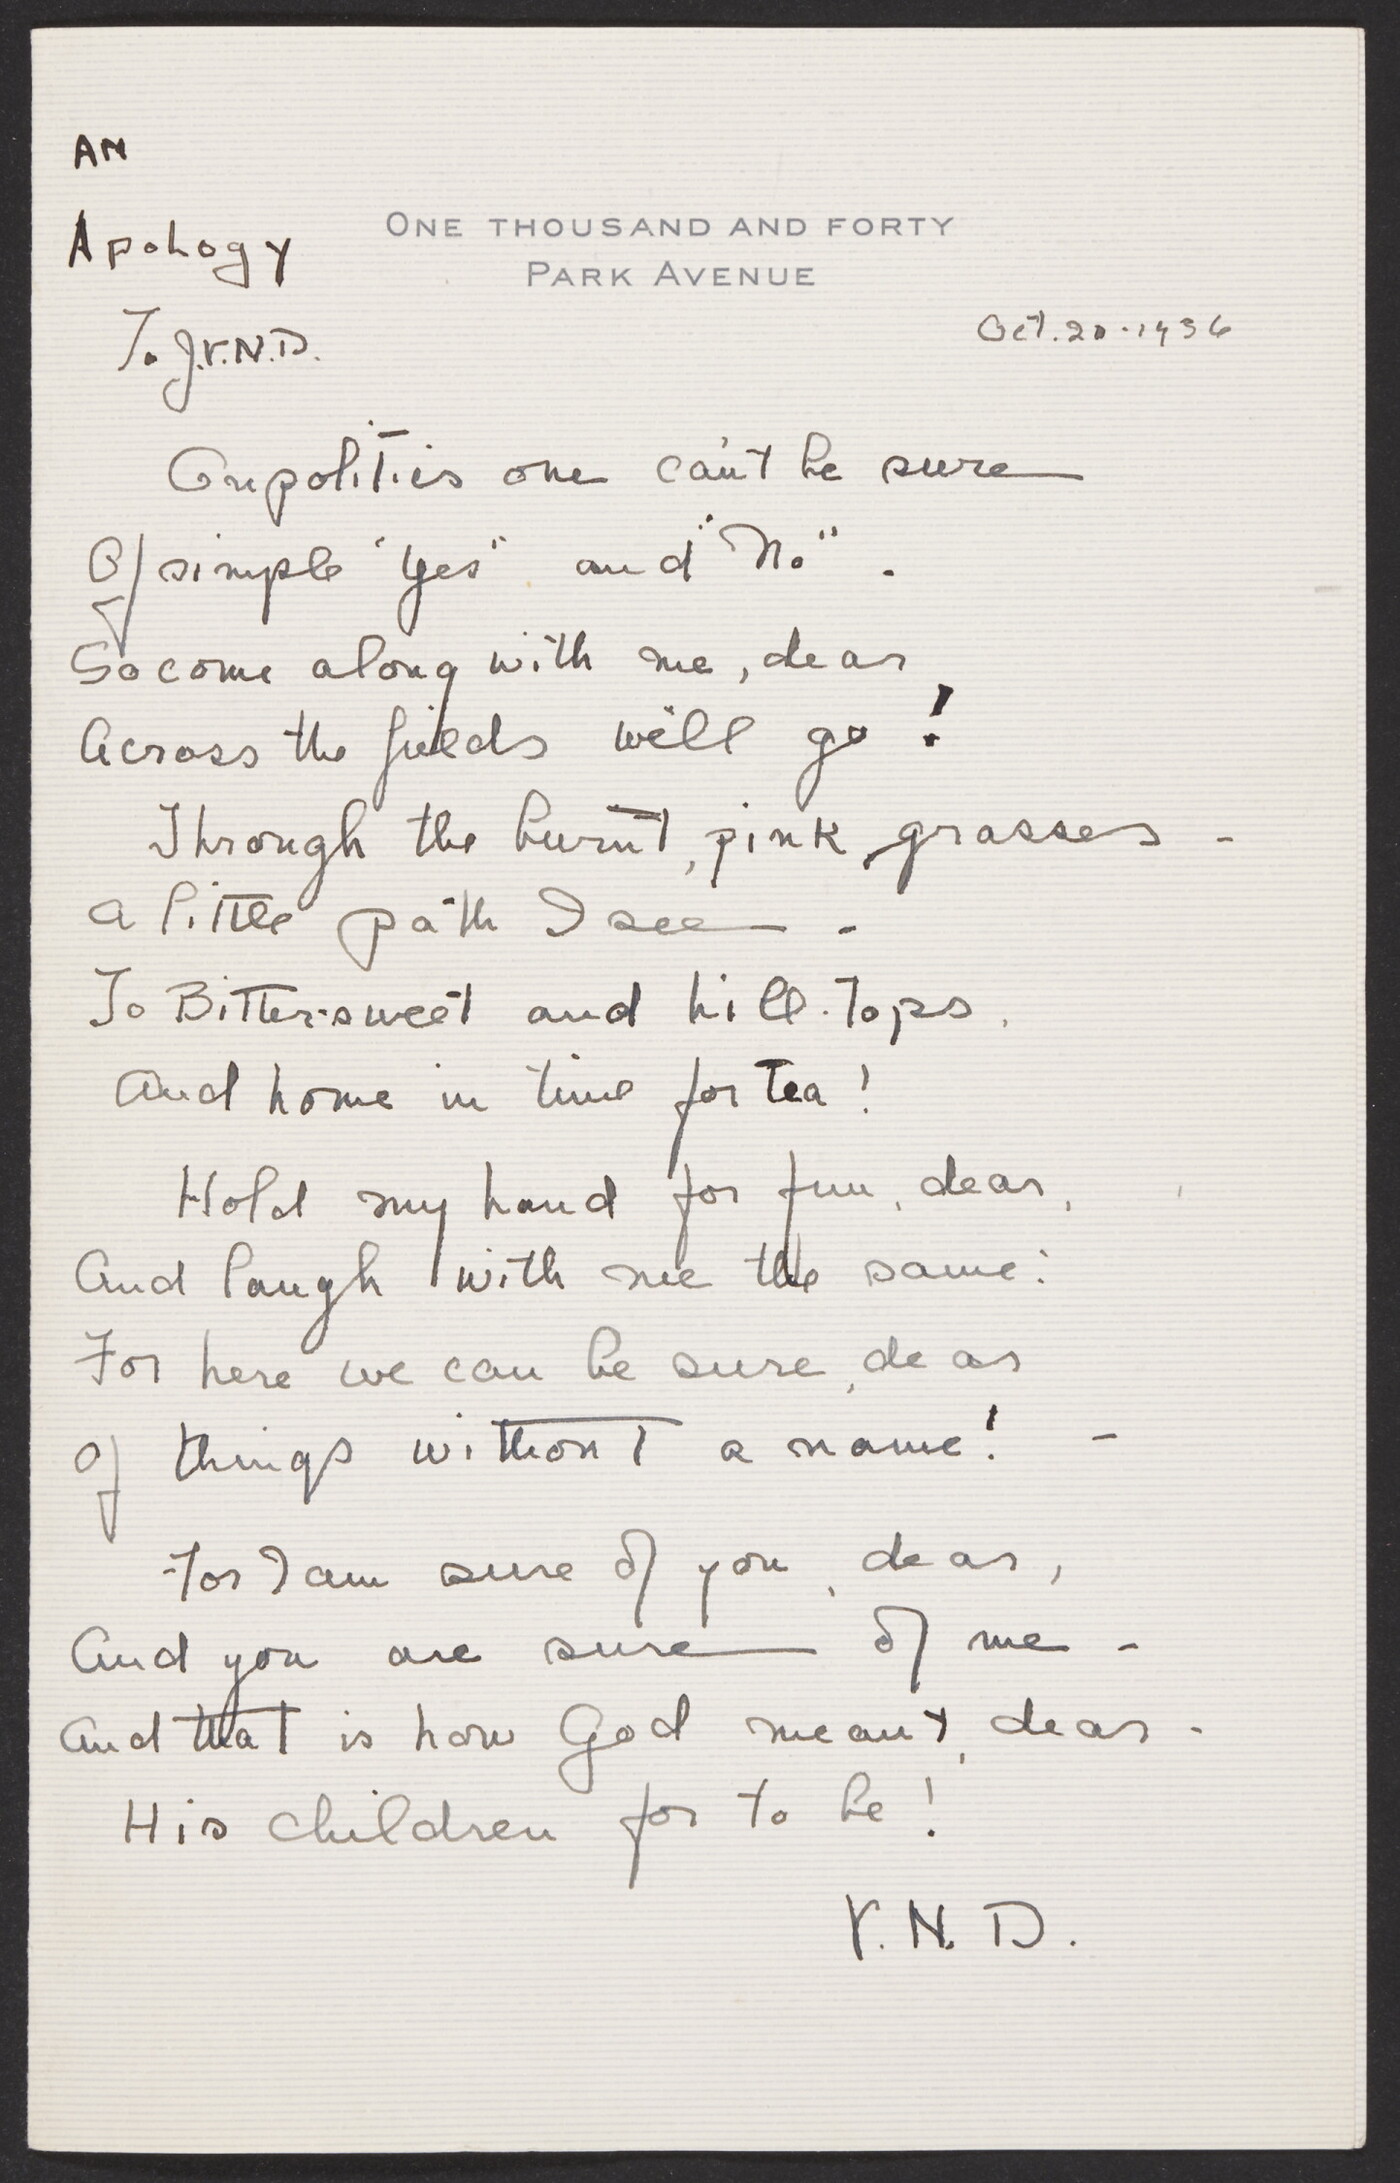 AN
Apology
ONE THOUSAND AND FORTY
PARK AVENUE
To J.V.N.D.
Oct. 20 - 1936
On politics one can't be sure
Of simple "Yes" and "No".
So come along with me, dear
Across the fields we'll go!
Through the burnt, pink, grasses -
A little path I see -
To Bitter-sweet and hill-tops,
And home in time for Tea!
Hold my hand for fun, dear,
And laugh with me the same:
For here we can be sure, dear
Of things without a name! -
For I am sure of you, dear,
And you are sure of me -
And that is how God meant, dear -
His children for to be!
V.N.D.